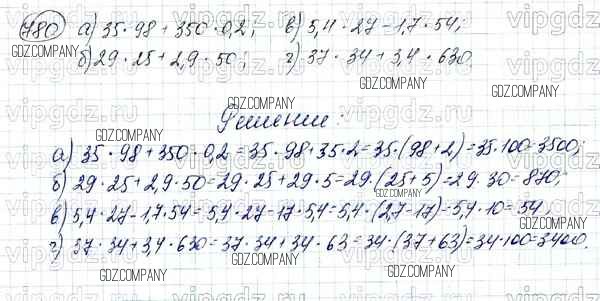 780 а) 35·98+350·0,2; в) 5,4·27-1,7·54;
б) 29·25+2,9·50; г) 37·34+3,4·630.
Решение:
а) 35·98+350·0,2=35·98+35·2=35·(98+2)=35·100=3500;
б) 29·25+2,9·50=29·25+29·5=29·(25+5)=29·30=870;
в) 5,4·27-1,7·54=5,4·27-17·5,4=5,4·(27-17)=5,4·10=54;
г) 37·34+3,4·630=37·34+34·63=34·(37+63)=34·100=3400.
vipgdz.ru
GDZ.COMPANY